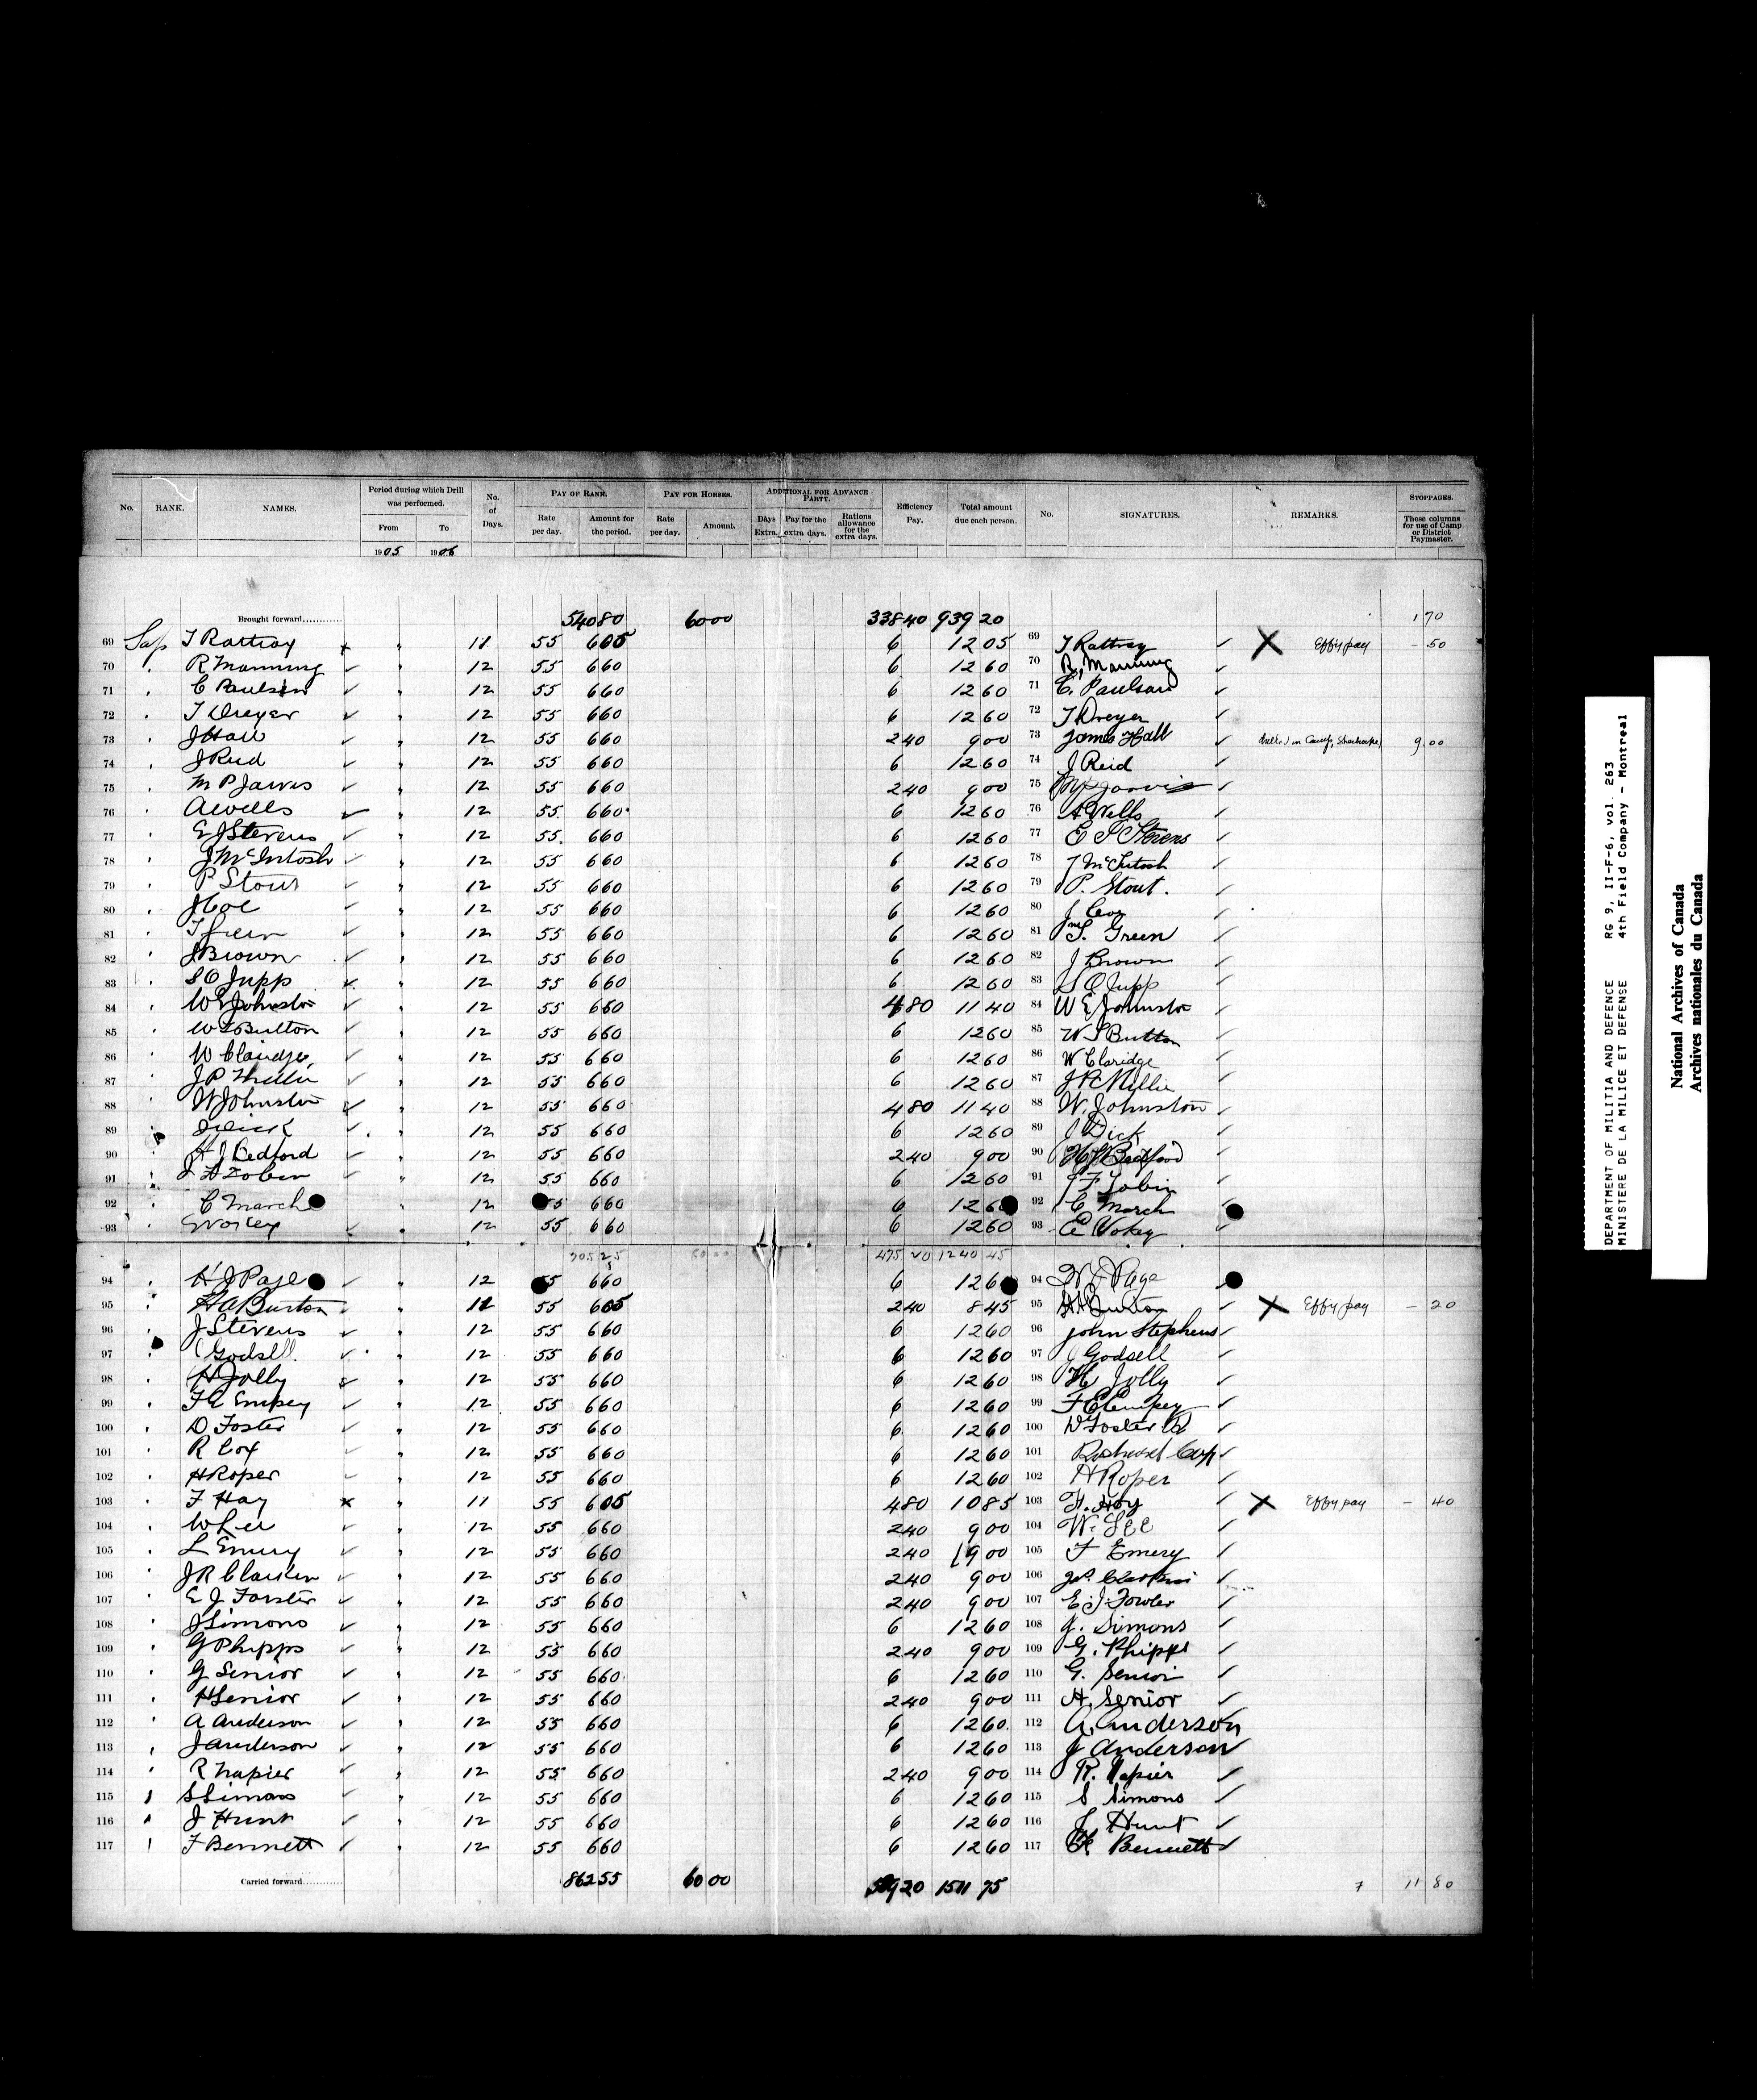 No. RANK. NAMES. Period during which Drill was performed. From To No. of Days. PAY OF RANK. Rate per day. Amount for the period. PAY FOR HORSES. Rate per day. Amount. ADDITIONAL FOR ADVANCE PARTY. Days Extra. Pay for the extra days. Rations allowance for the extra days. Efficiency Pay. Total amount due each person. No. SIGNATURES. REMARKS. STOPPAGES. These columns for use of Camp or District Paymaster.
1905 1906
Brought forward 540 80 60 00 338 40 939 20 1 70
69 Sap T Rattray x " 11 55 6 05 6 12 05 69 T Rattray ✓ X Effy pay - 50
70 " R Manning ✓ " 12 55 6 60 6 12 60 70 R. Manning ✓
71 " C Paulsen ✓ " 12 55 6 60 6 12 60 71 C. Paulsan ✓
72 " T Dreyer ✓ " 12 55 6 60 6 12 60 72 T Dreyer ✓
73 " J Hall ✓ " 12 55 6 60 2 40 9 00 73 James Hall ✓ in Camp 9.00
74 " J Reid ✓ " 12 55 6 60 6 12 60 74 J Reid ✓
75 " M P Jarvis ✓ " 12 55 6 60 2 40 9 00 75 MP Jarvis ✓
76 " A Wells ✓ " 12 55 6 60 6 12 60 76 A Wells ✓
77 " E J Stevens ✓ " 12 55 6 60 6 12 60 77 E J Stevens
78 " J McIntosh ✓ " 12 55 6 60 6 12 60 78 J McIntosh ✓
79 " P Stout ✓ " 12 55 6 60 6 12 60 79 P. Stout. ✓
80 " J Coe ✓ " 12 55 6 60 6 12 60 80 J ✓
81 " T Green ✓ " 12 55 6 60 6 12 60 81 T. Green ✓
82 " J Brown ✓ " 12 55 6 60 6 12 60 82 J Brown ✓
83 " S O Jupp ✓ " 12 55 6 60 6 12 60 83 S O Jupp ✓
84 " W E Johnston ✓ " 12 55 6 60 4 80 11 40 84 W E Johnston ✓
85 " W S Button " 12 55 6 60 6 12 60 85 W S Button
86 " W Claridge ✓ " 12 55 6 60 6 12 60 86 W Claridge ✓
87 " J P ✓ " 12 55 6 60 6 12 60 87 ✓
88 " W Johnston ✓ " 12 55 6 60 4 80 11 40 88 W. Johnston ✓
89 " J Dick ✓ " 12 55 6 60 6 12 60 89 J Dick ✓
90 " H J Bedford ✓ " 12 55 6 60 2 40 9 00 90 H J Bedford ✓
91 " J F Tobin " 12 55 6 60 6 12 60 91 J F Tobin ✓
92 " C March " 12 55 6 60 6 12 60 92 C March
93 " E Vokey ✓ " 12 55 6 60 6 12 60 93 E Vokey ✓
705 25 60 00 475 20 1240 45
94 " H J Page ✓ " 12 55 6 60 6 12 60 94 H J Page
95 " H A Burton ✓ " 11 55 6 05 2 40 8 45 95 H A Burton ✓ X Effy pay - 20
96 " J Stevens ✓ " 12 55 6 60 6 12 60 96 John Stephens ✓
97 " J Godsell ✓ " 12 55 6 60 6 12 60 97 J Godsell ✓
98 " H Jolly ✓ " 12 55 6 60 6 12 60 98 H Jolly ✓
99 " F E Empey ✓ " 12 55 6 60 6 12 60 99 F E Empey ✓
100 " D Foster ✓ " 12 55 6 60 6 12 60 100 D Foster ✓
101 " R Cox ✓ " 12 55 6 60 6 12 60 101 Richard Cox ✓
102 " H Roper ✓ " 12 55 6 60 6 12 60 102 H Roper ✓
103 " F Hay x " 11 55 6 05 4 80 10 85 103 F. Hoy ✓ X Effy pay - 40
104 " W Lee ✓ " 12 55 6 60 2 40 9 00 104 W. Lee ✓
105 " L Emery ✓ " 12 55 6 60 2 40 9 00 105 F Emery ✓
106 " J R ✓ " 12 55 6 60 2 40 9 00 106 ✓
107 " E J Forster ✓ " 12 55 6 60 2 40 9 00 107 E. J. Fowler ✓
108 " J Simons ✓ " 12 55 6 60 6 12 60 108 J. Simons ✓
109 " G Phipps ✓ " 12 55 6 60 2 40 9 00 109 G. Phipps ✓
110 " G Senior ✓ " 12 55 6 60 6 12 60 110 G. Senior ✓
111 " H Senior ✓ " 12 55 6 60 2 40 9 00 111 H. Senior ✓
112 " A Anderson ✓ " 12 55 6 60 6 12 60 112 A. Anderson
113 " J Anderson ✓ " 12 55 6 60 6 12 60 113 J Anderson ✓
114 " R Napier ✓ " 12 55 6 60 2 40 9 00 114 R. Napier ✓
115 " S Simons ✓ " 12 55 6 60 6 12 60 115 S Simons ✓
116 " J Hunt ✓ " 12 55 6 60 6 12 60 116 J Hunt ✓
117 " F Bennett ✓ " 12 55 6 60 6 12 60 117 F Bennett ✓
Carried forward 862 55 60 00 589 20 1511 75 7 11 80
DEPARTMENT OF MILITIA AND DEFENCE RG 9, II-F-6, vol. 263
MINISTERE DE LA MILICE ET DEFENSE 4th Field Company - Montreal
National Archives of Canada
Archives nationales du Canada